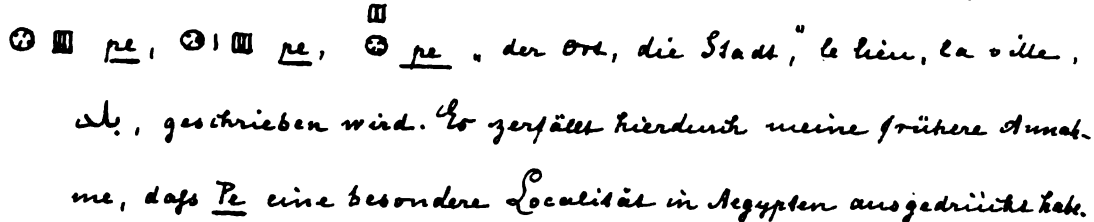 𓊖 𓊪 pe, 𓊖𓏤 𓊪 pe, 𓊪𓊖 pe „der Ort, die Stadt," le lieu, la ville,
بلد, geschrieben wird. Es zerfällt hierdurch meine frühere Annah-
me, daſs Pe eine besondere Localität in Aegypten ausgedrückt habe.